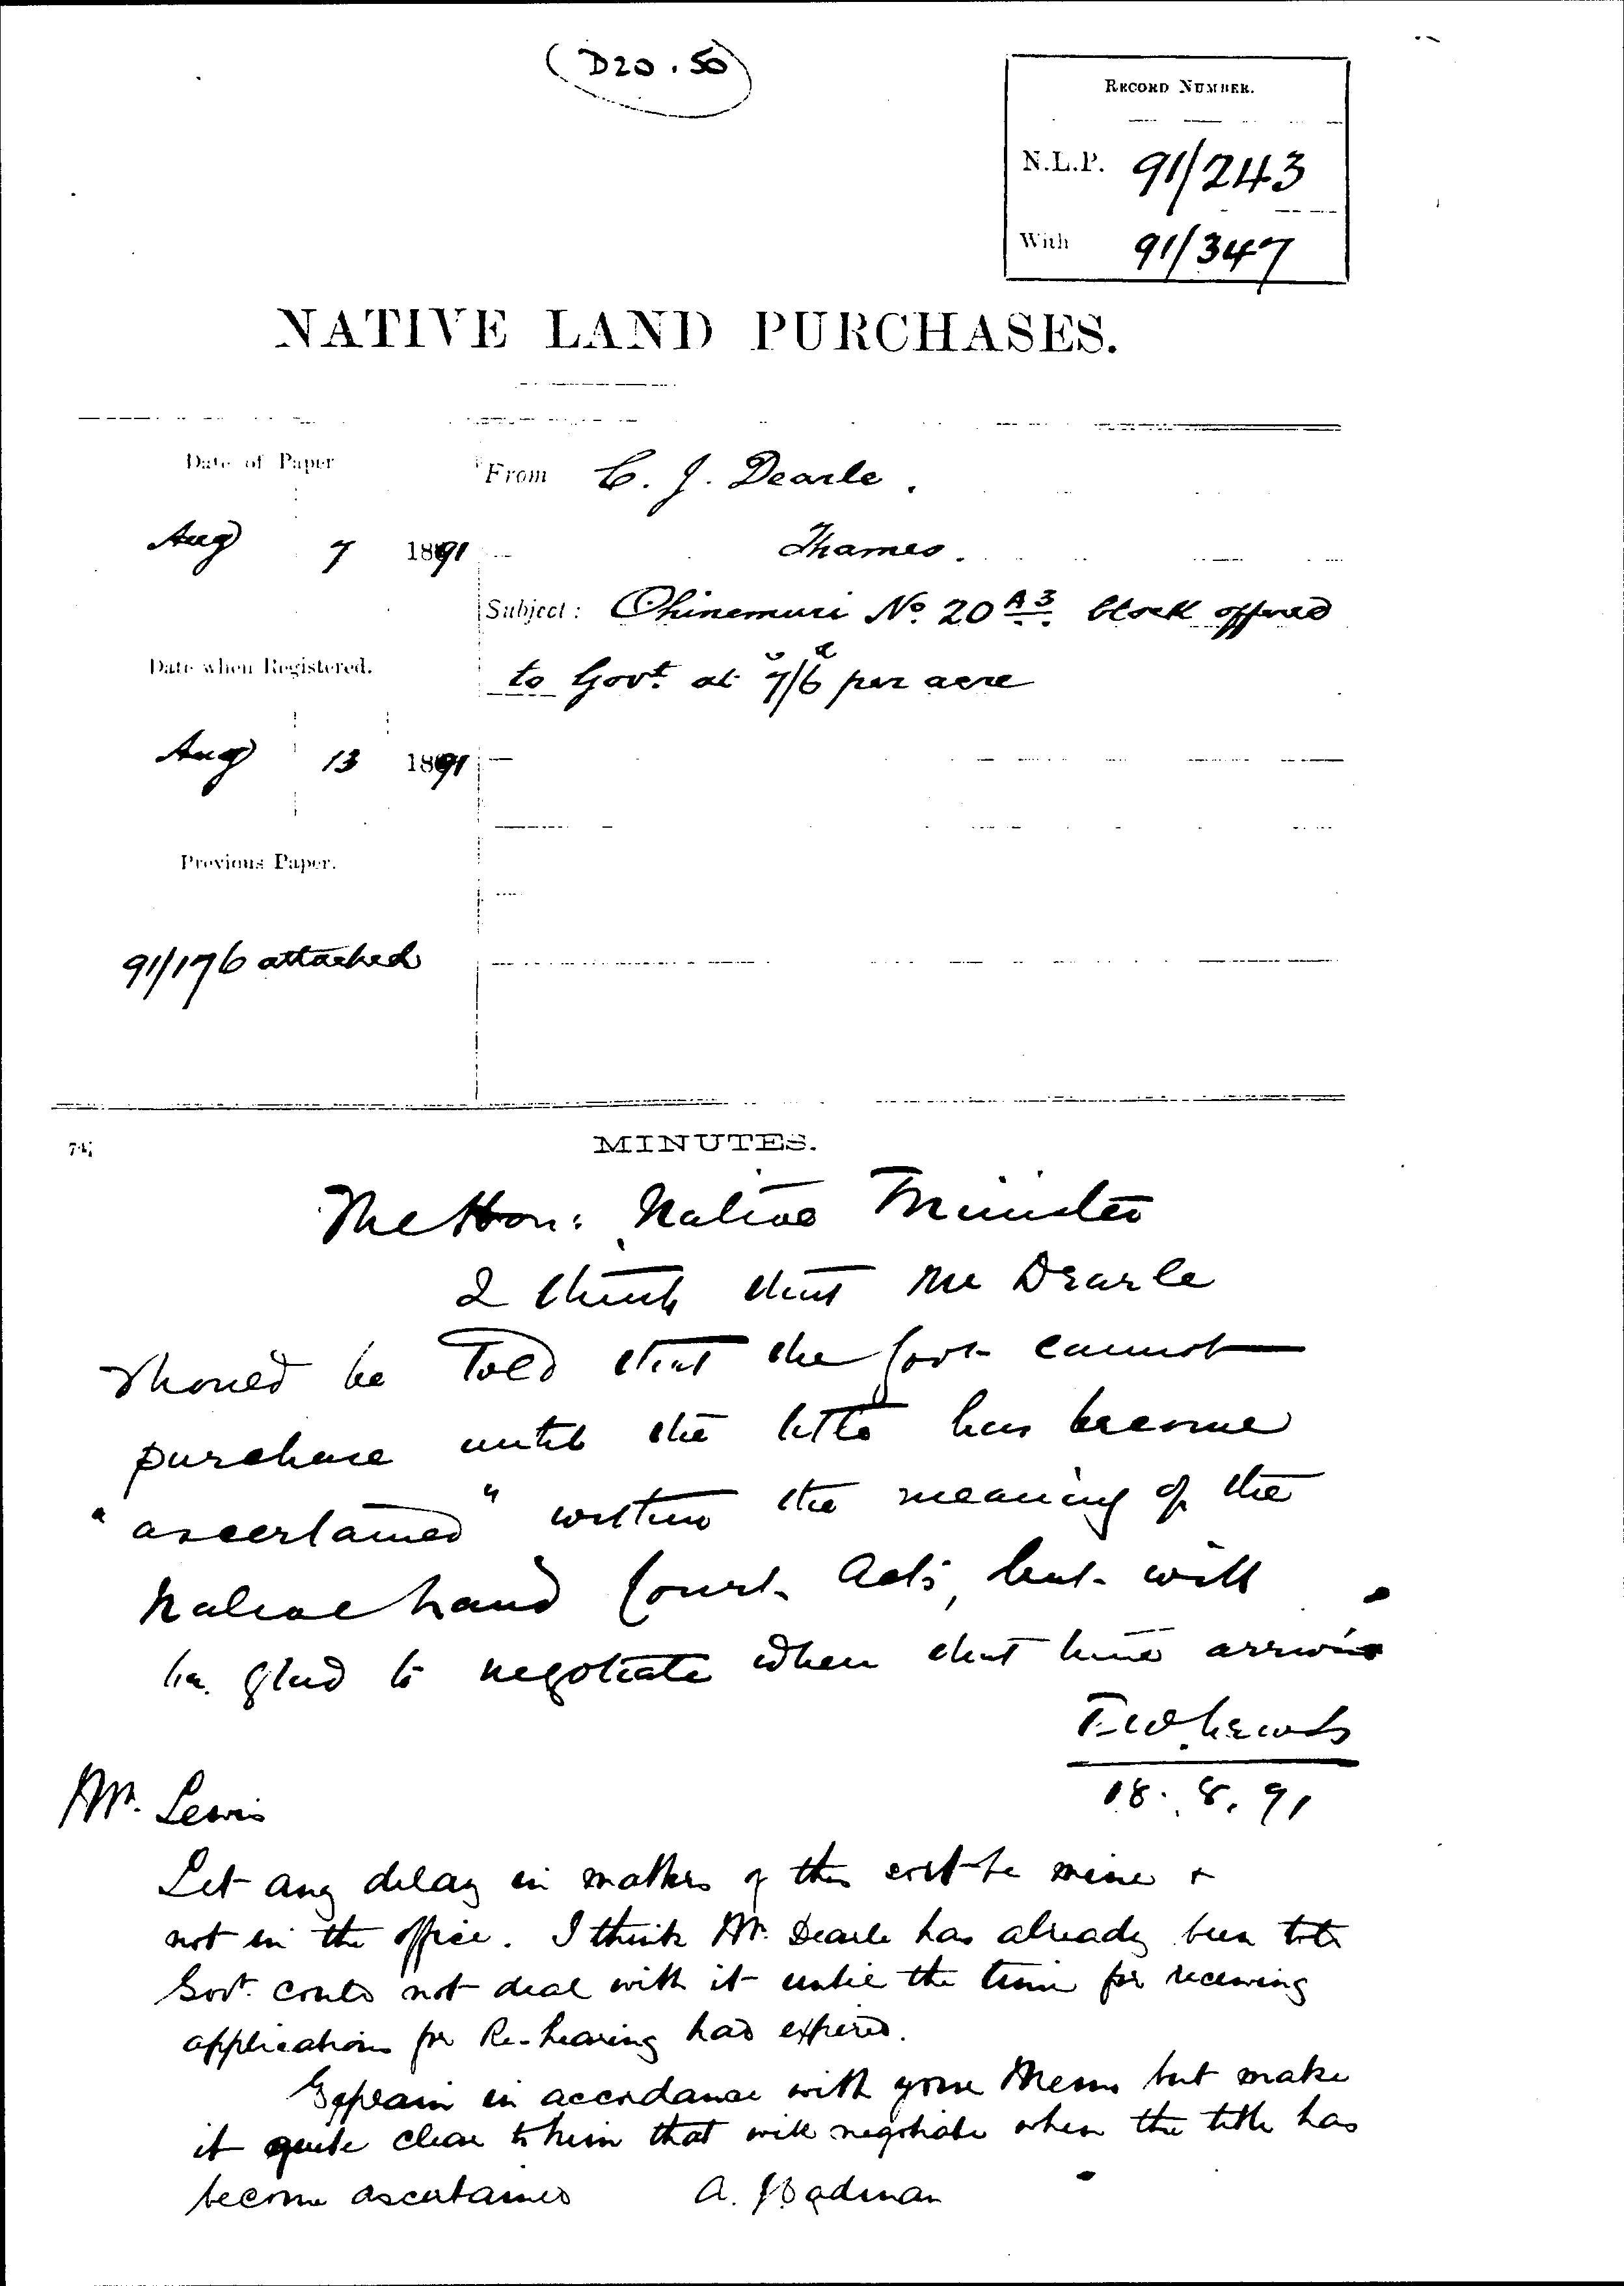 (D20.50)
RECORD NUMBER.
N.L.P. 91/243
With 91/347
NATIVE LAND PURCHASES.
Date of Paper
From C. J. Dearle.
Aug 7 1891
Thames.
Subject: Ohinemuri No. 20 A3 block offered
Date when Registered.
to Govt. at 7s/6d per acre
Aug 13 1891
Previous Paper.
91/176 attached
MINUTES.
The Hon: Native Minister
I think that Mr Dearle
should be told that the Govt cannot
purchase until the title has become
"ascertained" within the meaning of the
Native Land Court Acts, but will
be glad to negotiate when that time arrives
T.W. Lewis
18.8.91
Mr. Lewis
Let any delay in matters of this sort be mine &
not in the office. I think Mr. Dearle has already been told
Govt. could not deal with it until the time for receiving
applications for Re-hearing had expired.
Explain in accordance with your Memo but make
it quite clear to him that will negotiate when the title has
become ascertained A. J Cadman